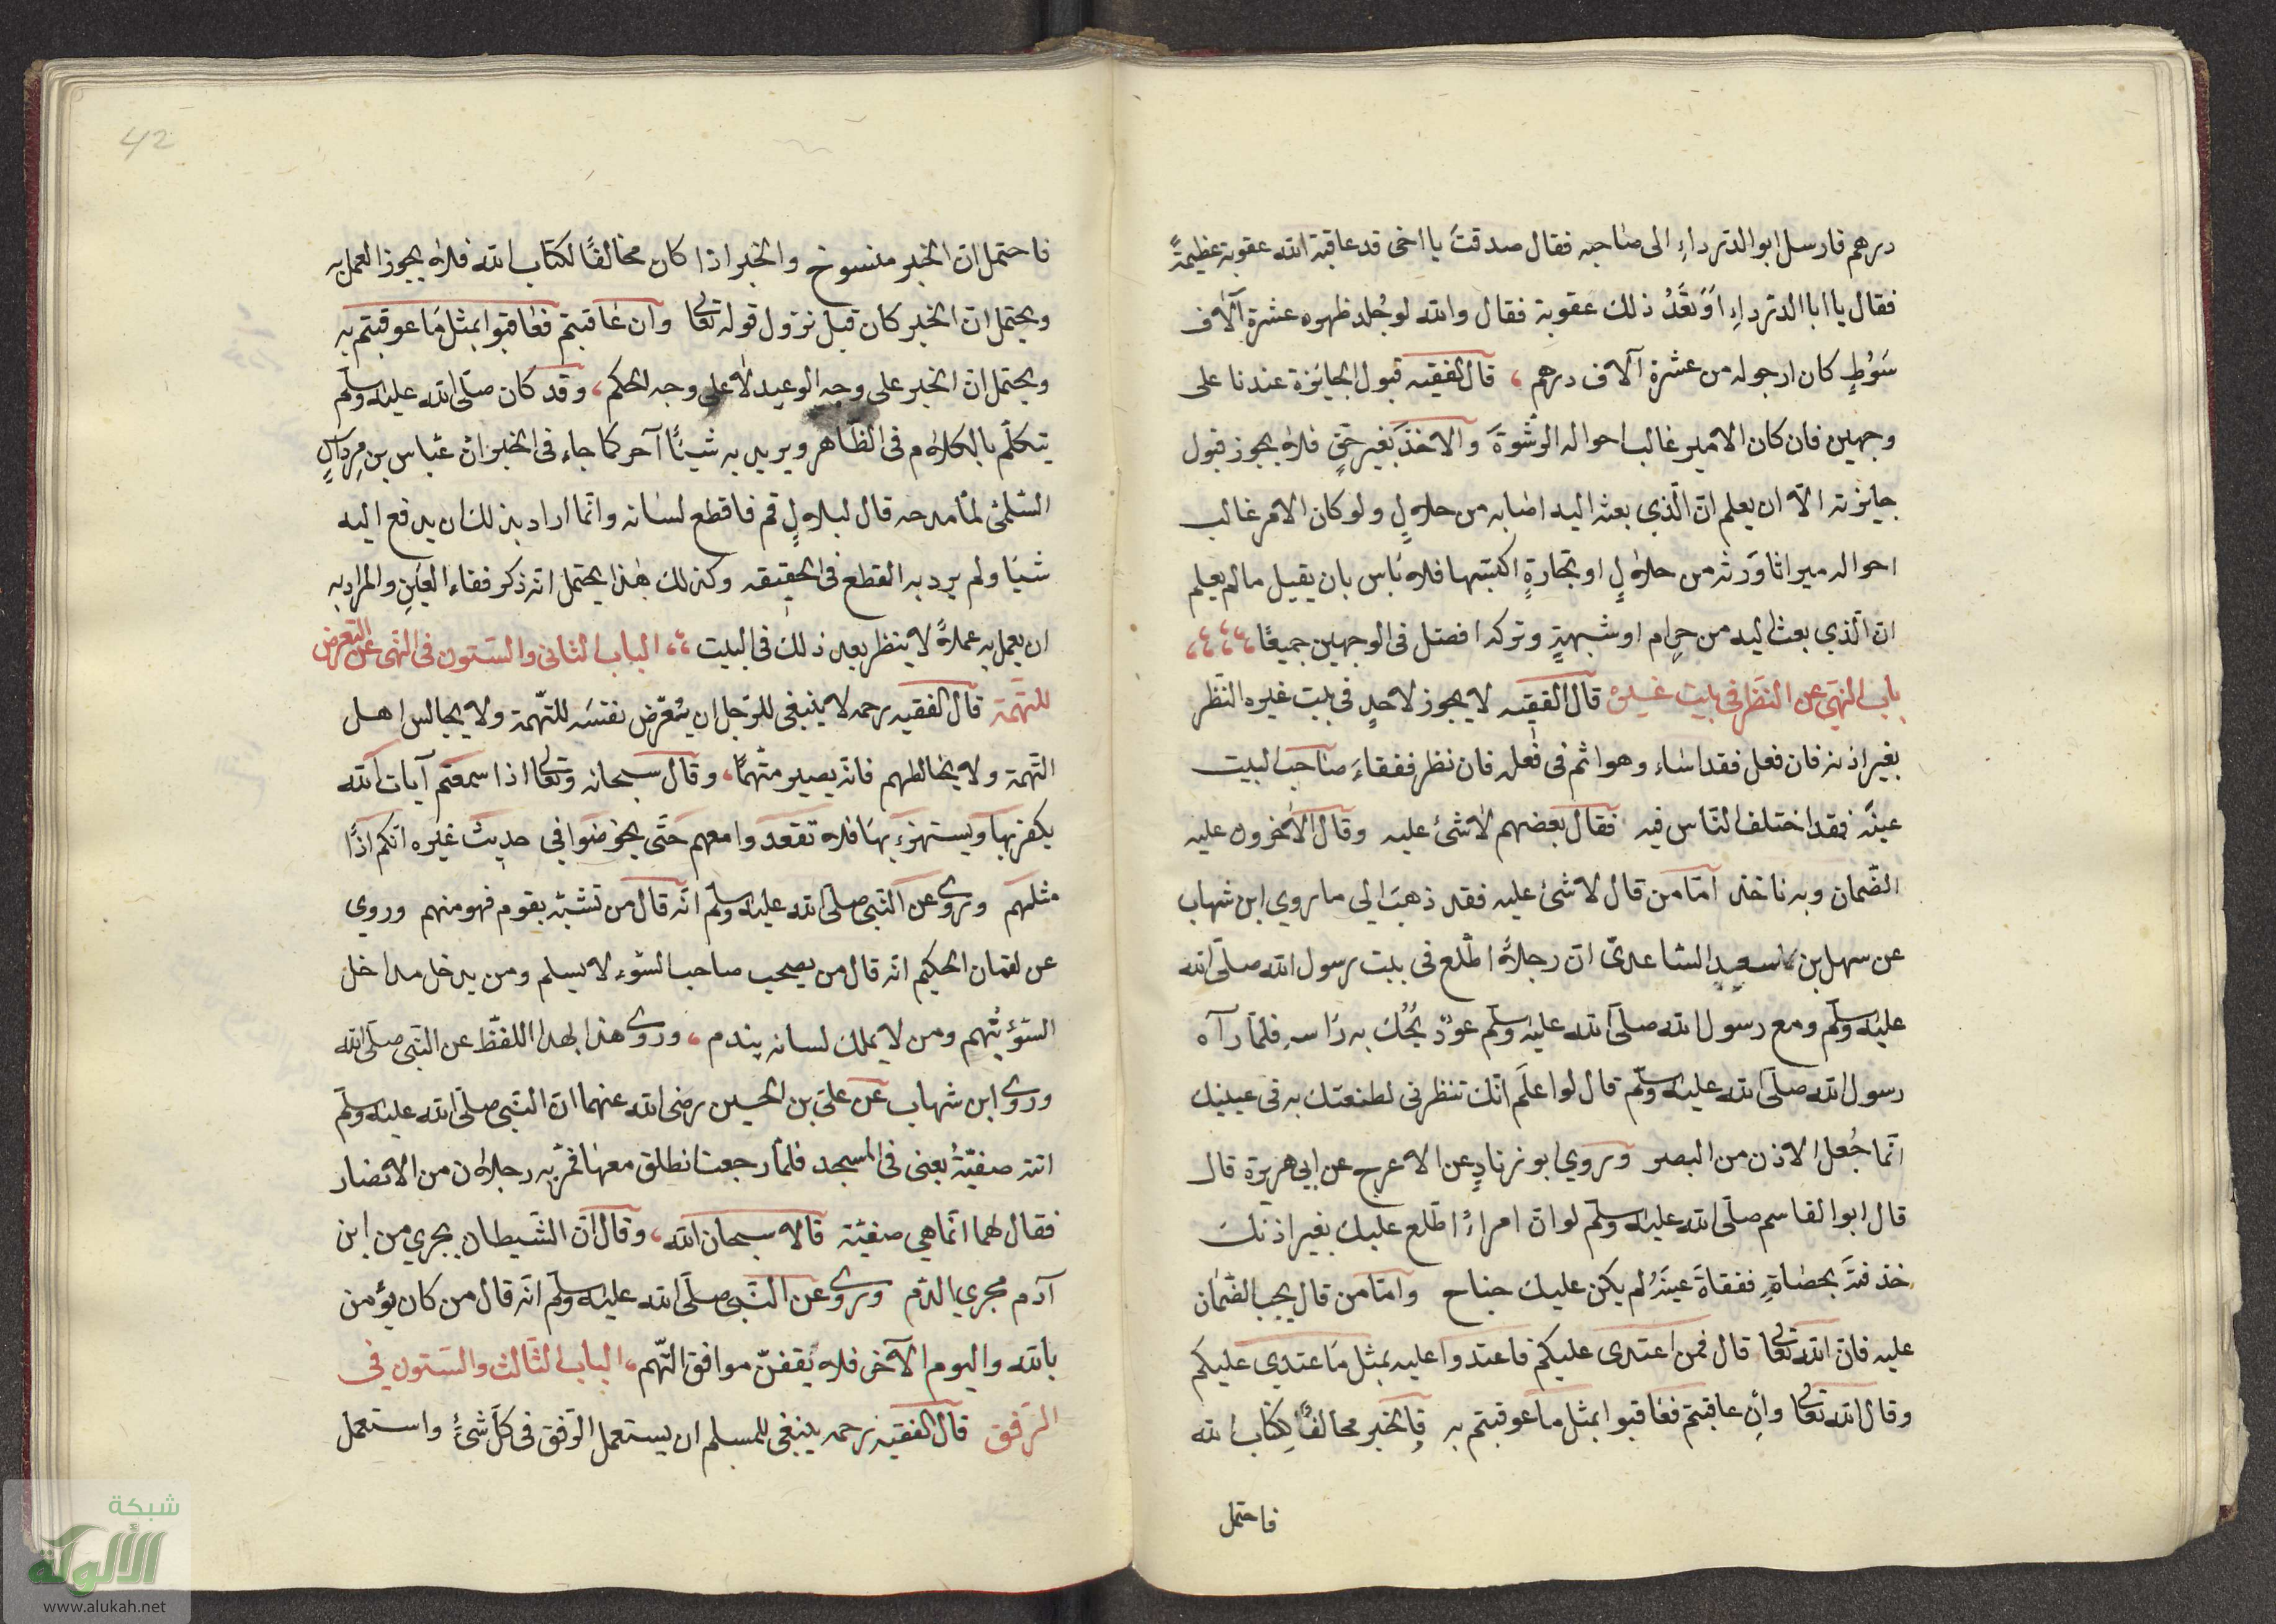 درهم فارسل ابو الدرداءِ الى صاحبه فقال صدقتَ يا اخى قد عاقبة الله عقوبة عظيمةً
فقال يا ابا الدرداءِ اَوَ تَعُدُ ذلك عقوبة فقال والله لو جُلد ظهوه عشرة آلاف
سَوْطٍ كان ارجو له من عشرة آلاف درهم ، قال الفقيه قبول الجايزة عندنا على
وجهين فان كان الامير غالب احواله الرشوةَ والاخذَ بغير حقٍ فلا يجوز قبول
جايزته الّا ان يعلم انّ الّذي بعثه اليه اصابه من حلالٍ ولو كان الامر غالب
احواله ميراثا وَرثه من حلالٍ او تجارةٍ اكتسبها فلا بَاس بان يقبل مالم يعلم
انّ الّذي بعث اليه من حرام او شبهةٍ وتركه افضل فى الوجهين جميعًا
باب النهى عن النظر فى بيت غيره قال الفقيه لا يجوز لاحدٍ فى بيت غيره النَّظر
بغير اذنه فان فعل فقد اسَاء وهو اثم فى فعله فان نظر ففقاءَ صَاحب البيت
عينَه فقد اختلف النّاس فيه فقال بعضهم لا شئ عليه وقال الآخرون عليه
الضّمان وبه ناخذ امّا من قال لا شئ عليه فقد ذهبَ الى ما روي ابن شهاب
عن سهل بن سعيدٍ السّاعدىّ انّ رجلاً اطّلع فى بيت رسول الله صلّى الله
عليه وسلّم ومع رسول الله صلّى الله عليه وسلّم عودٌ يحُكّ به رَاسهِ فلمّا رآه
رسول الله صلّى الله عليه وسلّم قال لو اعلَم انّك تنظرنى لطنعتك به فى عينيك
انّما جُعل الاذن من البصر وروي ابو زنادٍ عن الاعرج عن ابي هريرة قال
قال ابو القاسم صلّى الله عليه وسلّم لو انّ امراءً اطّلع عليك بغير اذنك
خذفتَه بحصَاةٍ ففقاةَ عينَهُ لم يكن عليك جناح وامّا من قال يجب الضّمان
عليه فانّ الله تعالى قال فمن اعتدى عليكم فاعتدوا عليه بمثل مَا عتدي عليكم
وقال الله تعالى وأن عاقبتم فعَاقبوا بمثل ما عوقبتم به فالخبر مخالفًا لكتاب الله
فاحتمل
42
فاحتمل انّ الخبر منسوخ والخبر اذا كان مخالفًا لكتاب الله فلا يجوز العمل به
ويحتمل انّ الخبر كان قبل نزول قوله تعالى وان عَاقبتم فعَاقبوا بمثل مَا عوقبتم به
ويحتمل انّ الخبر على وجه الوعيد لا على وجه الحكم ، وقد كان صلّى الله عليه وسلّم
يتكلّم بالكلام فى الظّاهر ويريد به شيئًا آخر كما جاء فى الخبر انّ عبّاس بن مِردَاسٍ
السّلمىّ لمّا مدحه قال لبلالٍ قم فاقطع لسَانه وانّما اراد بذلك ان يدفع اليه
شيئا ولم يرد به القطع فى الحقيقه وكذلك هٰذا يحتمل انّه ذكر فقاء العَينِ والمراد به
ان يعمل به عملاً لا ينظر بعد ذلك فى البيت ،، الباب الثانى والستون فى النّهى عن التّعرض
للتّهمة قال الفقيه رحمه لا ينبغى للرّجل ان يتعرّض نفسَه للتّهمة ولا يجالس اهل
التّهمة ولا يخالطهم فانّه يصير متّهمًا ، وقال سبحانه وتعالى اذا سمعتم آيات الله
يكفر بها ويستهزء بهَا فلا تقعدوا معهم حتّى يخوضوا في حديث غيره انّكم اذًا
مثلهم وروى عن النّبى صلّى الله عليه وسلّم انّه قال من تشبّه بقوم فهو منهم وروي
عن لقمان الحكيم انّه قال من يصحب صاحب السّوء لا يسلم ومن يدخل مداخل
السّوء يتّهم ومن لا يملك لسانه يندم ، وروى هذا بهذا اللفظ عن النّبى صلّى الله
وروى ابن شهاب عن علىّ بن الحسين رضى الله عنهما انّ النّبى صلّى الله عليه وسلّم
اتته صفيّةُ يعنى فى المسجد فلمّا رجعت انطلق معهَا فمرّ به رجلان من الانصَار
فقال لهما انّما هي صفيّة قالا سبحان الله ، وقال انّ الشّيطان يجري من ابن
آدم مجري الدّم وروى عن النّبى صلّى الله عليه وسلّم انّه قال من كان يؤمن
بالله واليوم الآخر فلا يَقفنّ موافق التّهم ، الباب الثّالث والستون فى
الرّفق قال الفقيه رحمه ينبغى للمسلم ان يستعمل الرّفق فى كلّ شئٍ واستعمل
شبكة
الألوكة
www.alukah.net